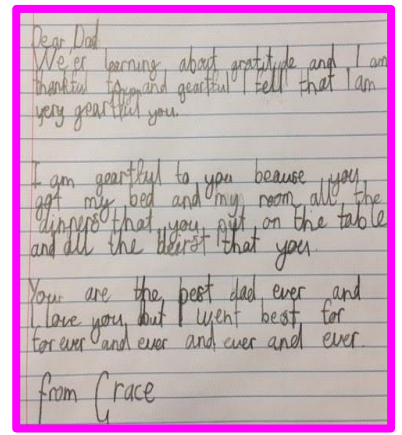 Dear Dad
We er learning about gratitude and I am
thankful and gearful I fell that I am
very gearful you.
I am gearful to you beause you
got my bed and my room all the
dinners that you put on the table
and all the that you
Your are the best dad ever and
I love you but I went best for
for ever and ever and ever and ever.
from Grace